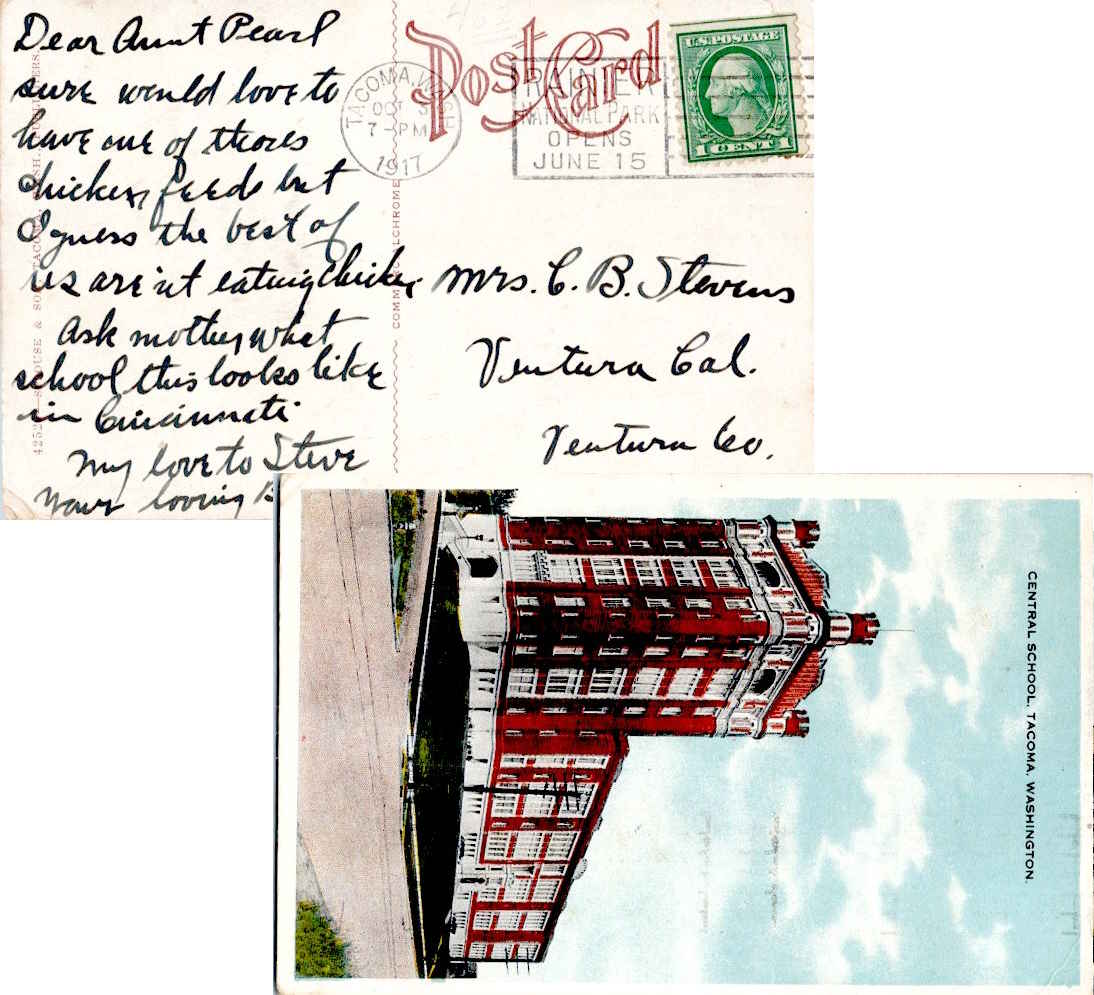 Dear Aunt Pearl
sure would love to
have one of thoes
chicken feeds but
I guess the best of
us are'nt eating chicken
Ask mother what
school this looks like
in Cincinnati
My love to Steve
Your loving B
Post Card
TACOMA, WASH.
OCT 3
7-PM
1917
RAINIER
NATIONAL PARK
OPENS
JUNE 15
U.S. POSTAGE
1 ONE CENT 1
Mrs. C. B. Stevens
Ventura Cal.
Ventura Co.
COMMERCIALCHROME
CENTRAL SCHOOL, TACOMA, WASHINGTON.